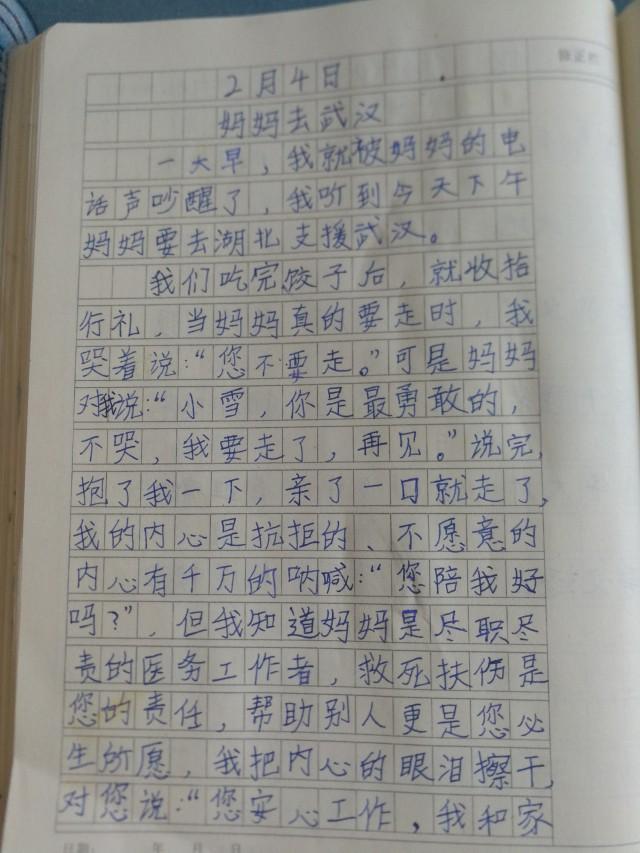 2月4日
妈妈去武汉
一大早，我就被妈妈的电
话声吵醒了，我听到今天下午
妈妈要去湖北支援武汉。
我们吃完饺子后，就收拾
行礼，当妈妈真的要走时，我
哭着说：“您不要走。”可是妈妈
对我说：“小雪，你是最勇敢的，
不哭，我要走了，再见。”说完，
抱了我一下，亲了一口就走了，
我的内心是抗拒的、不愿意的
内心有千万的呐喊：“您陪我好
吗？”，但我知道妈妈是尽职尽
责的医务工作者，救死扶伤是
您的责任，帮助别人更是您必
生所愿，我把内心的眼泪擦干，
对您说：“您安心工作，我和家
日期： 年 月 日